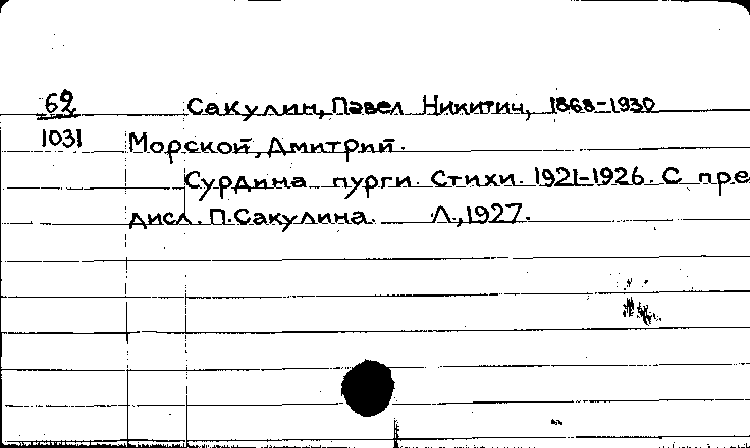 62 Сакулин, Павел Никитич, 1868-1930
1031 Морской, Дмитрий.
Сурдина пурги. Стихи. 1921-1926. С пре
дисл. П. Сакулина. Л., 1927.